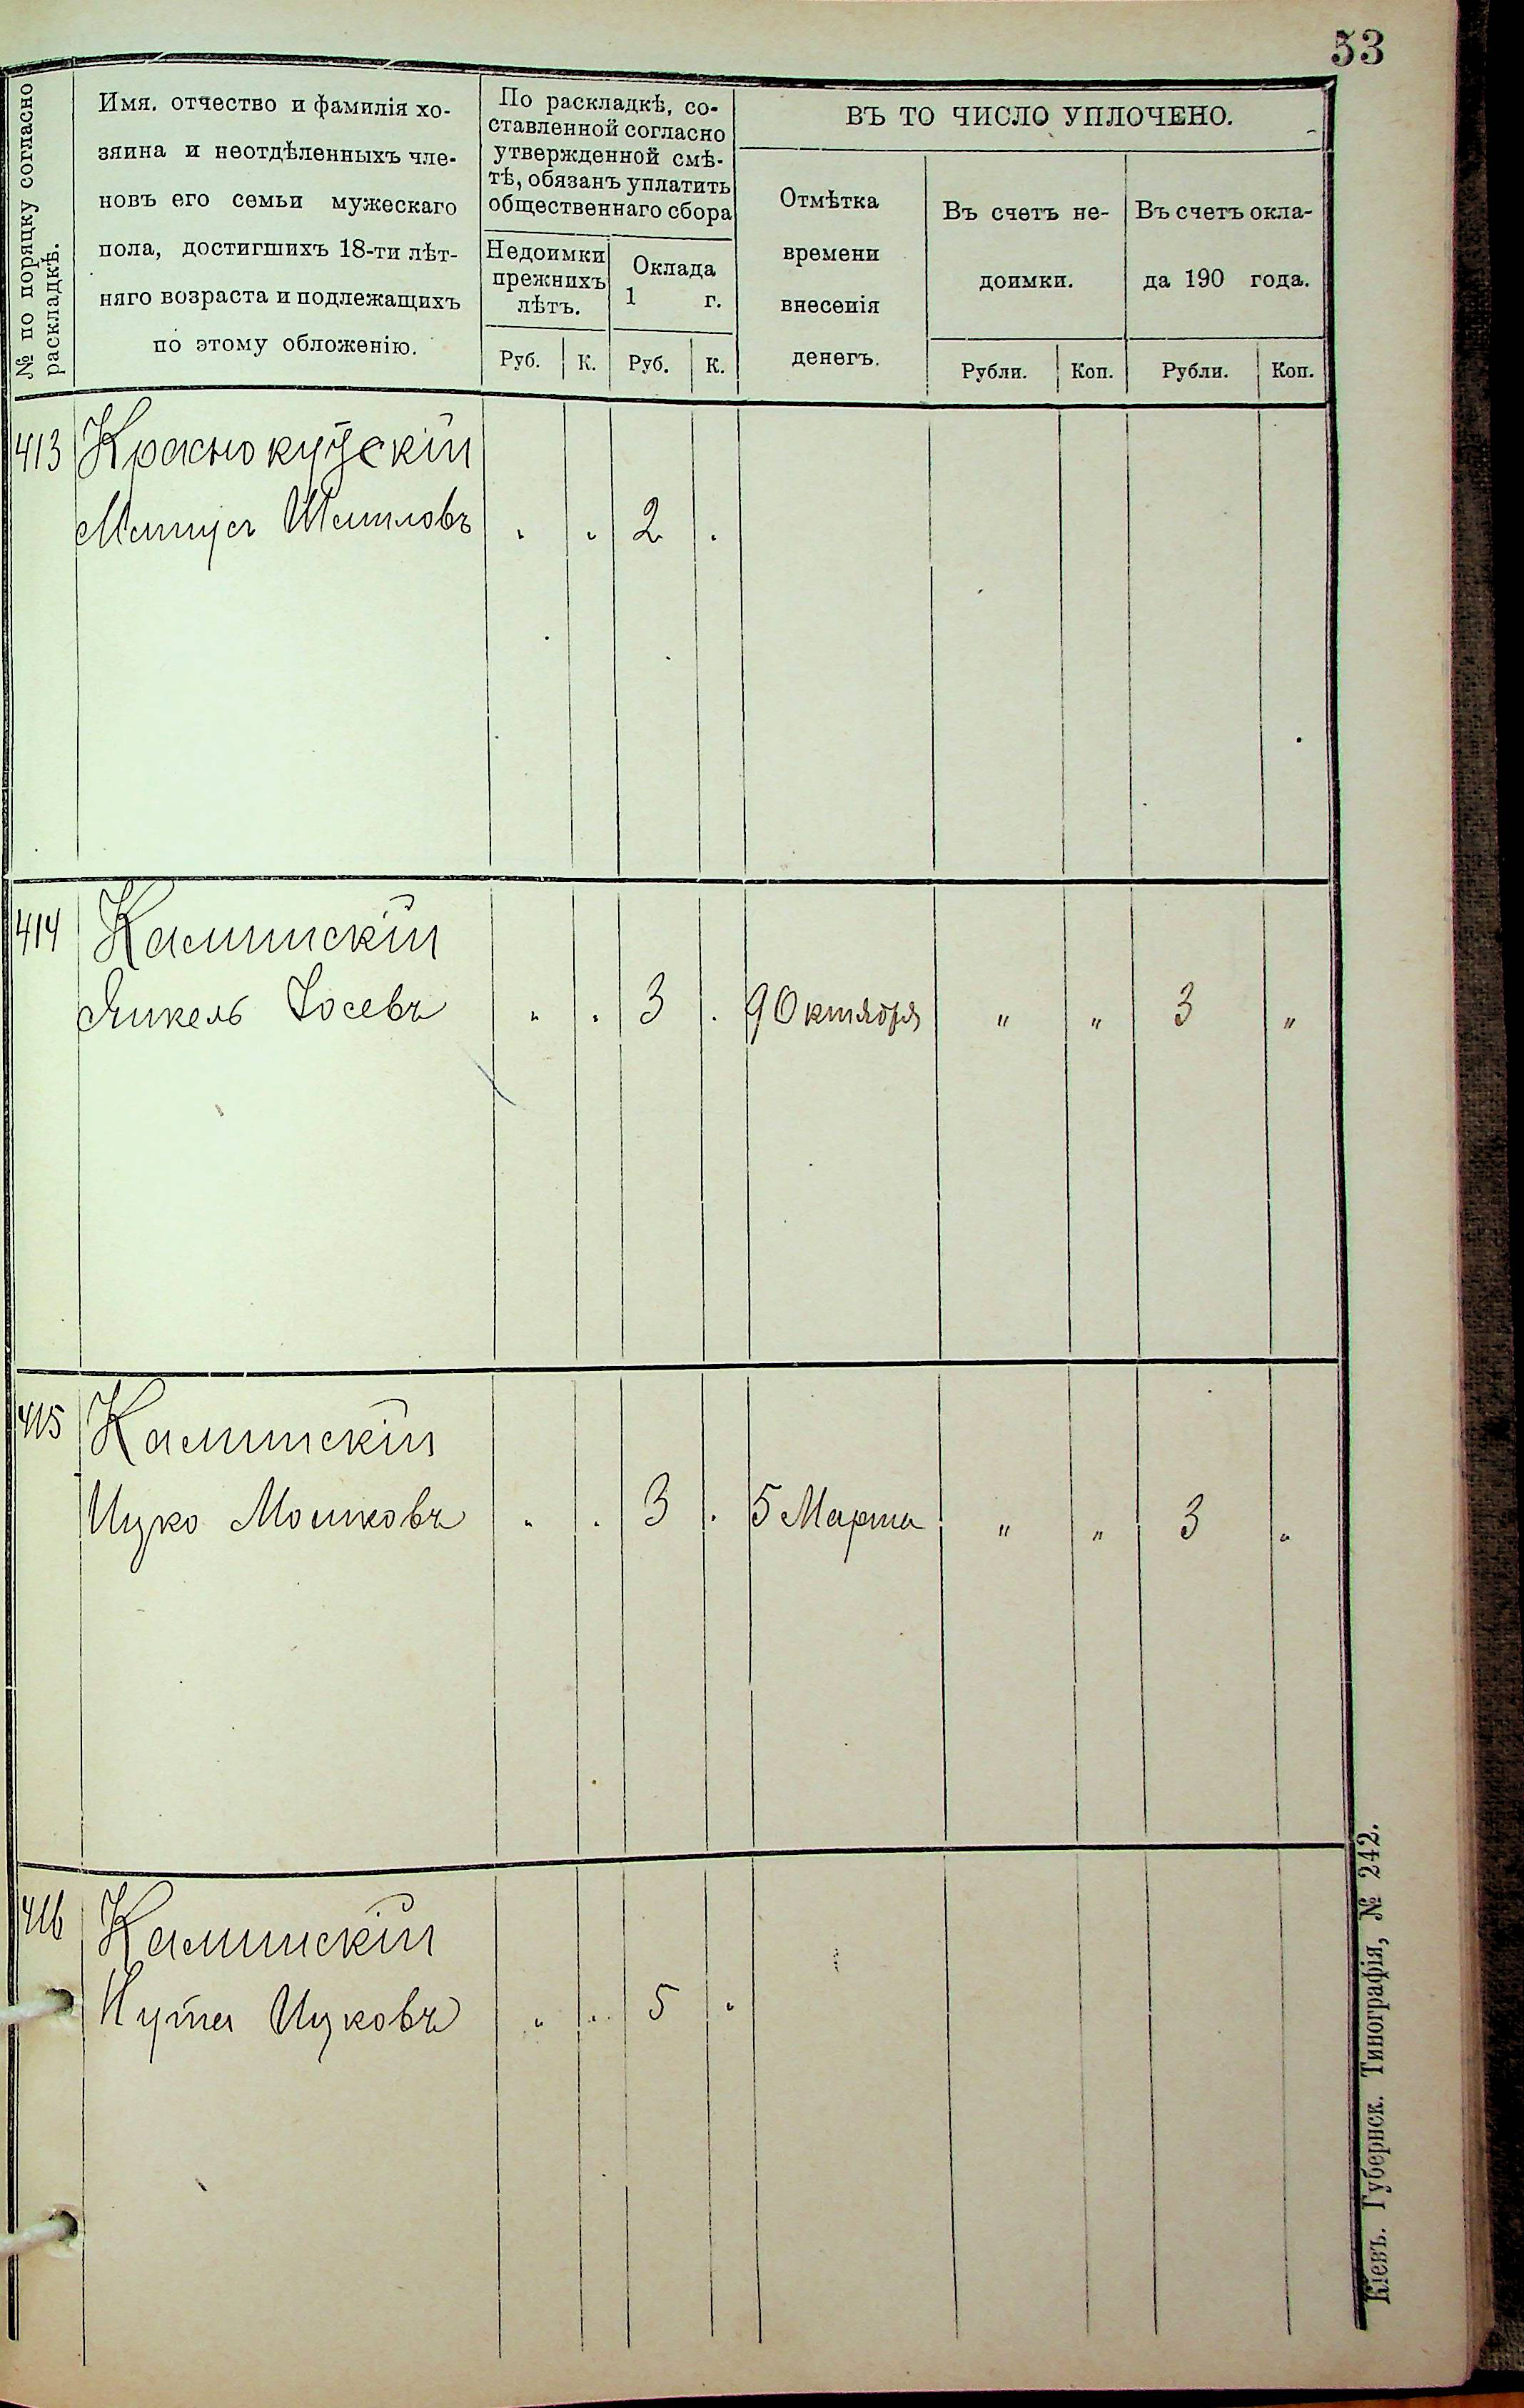 53
№ по поряцку согласно
раскладкѣ.
Имя. отчество и фамилія хо-
зяина и неотдѣленныхъ чле-
новъ его семьи мужескаго
пола, достигшихъ 18-ти лѣт-
няго возраста и подлежащихъ
по этому обложенію.
По раскладкѣ, со-
ставленной согласно
утвержденной смѣ-
тѣ, обязанъ уплатить
общественнаго сбора
Недоимки
прежнихъ
лѣтъ.
Оклада
1 г.
Руб. К. Руб. К.
ВЪ ТО ЧИСЛО УПЛОЧЕНО.
Отмѣтка
времени
внесенія
денегъ.
Въ счетъ не-
доимки.
Въ счетъ окла-
да 190 года.
Рубли. Коп. Рубли. Коп.
413 Краснокутскій
Шмиловъ " " 2 "
414 Калинскій
Янкель Іосевъ " " 3 " 9 Октября " " 3 "
415 Калинскій
Ицко Мошковъ " " 3 " 5 Марта " " 3 "
416 Калинскій
Нута Ицковъ " " 5 "
Кіевъ. Губернск. Типографія, № 242.